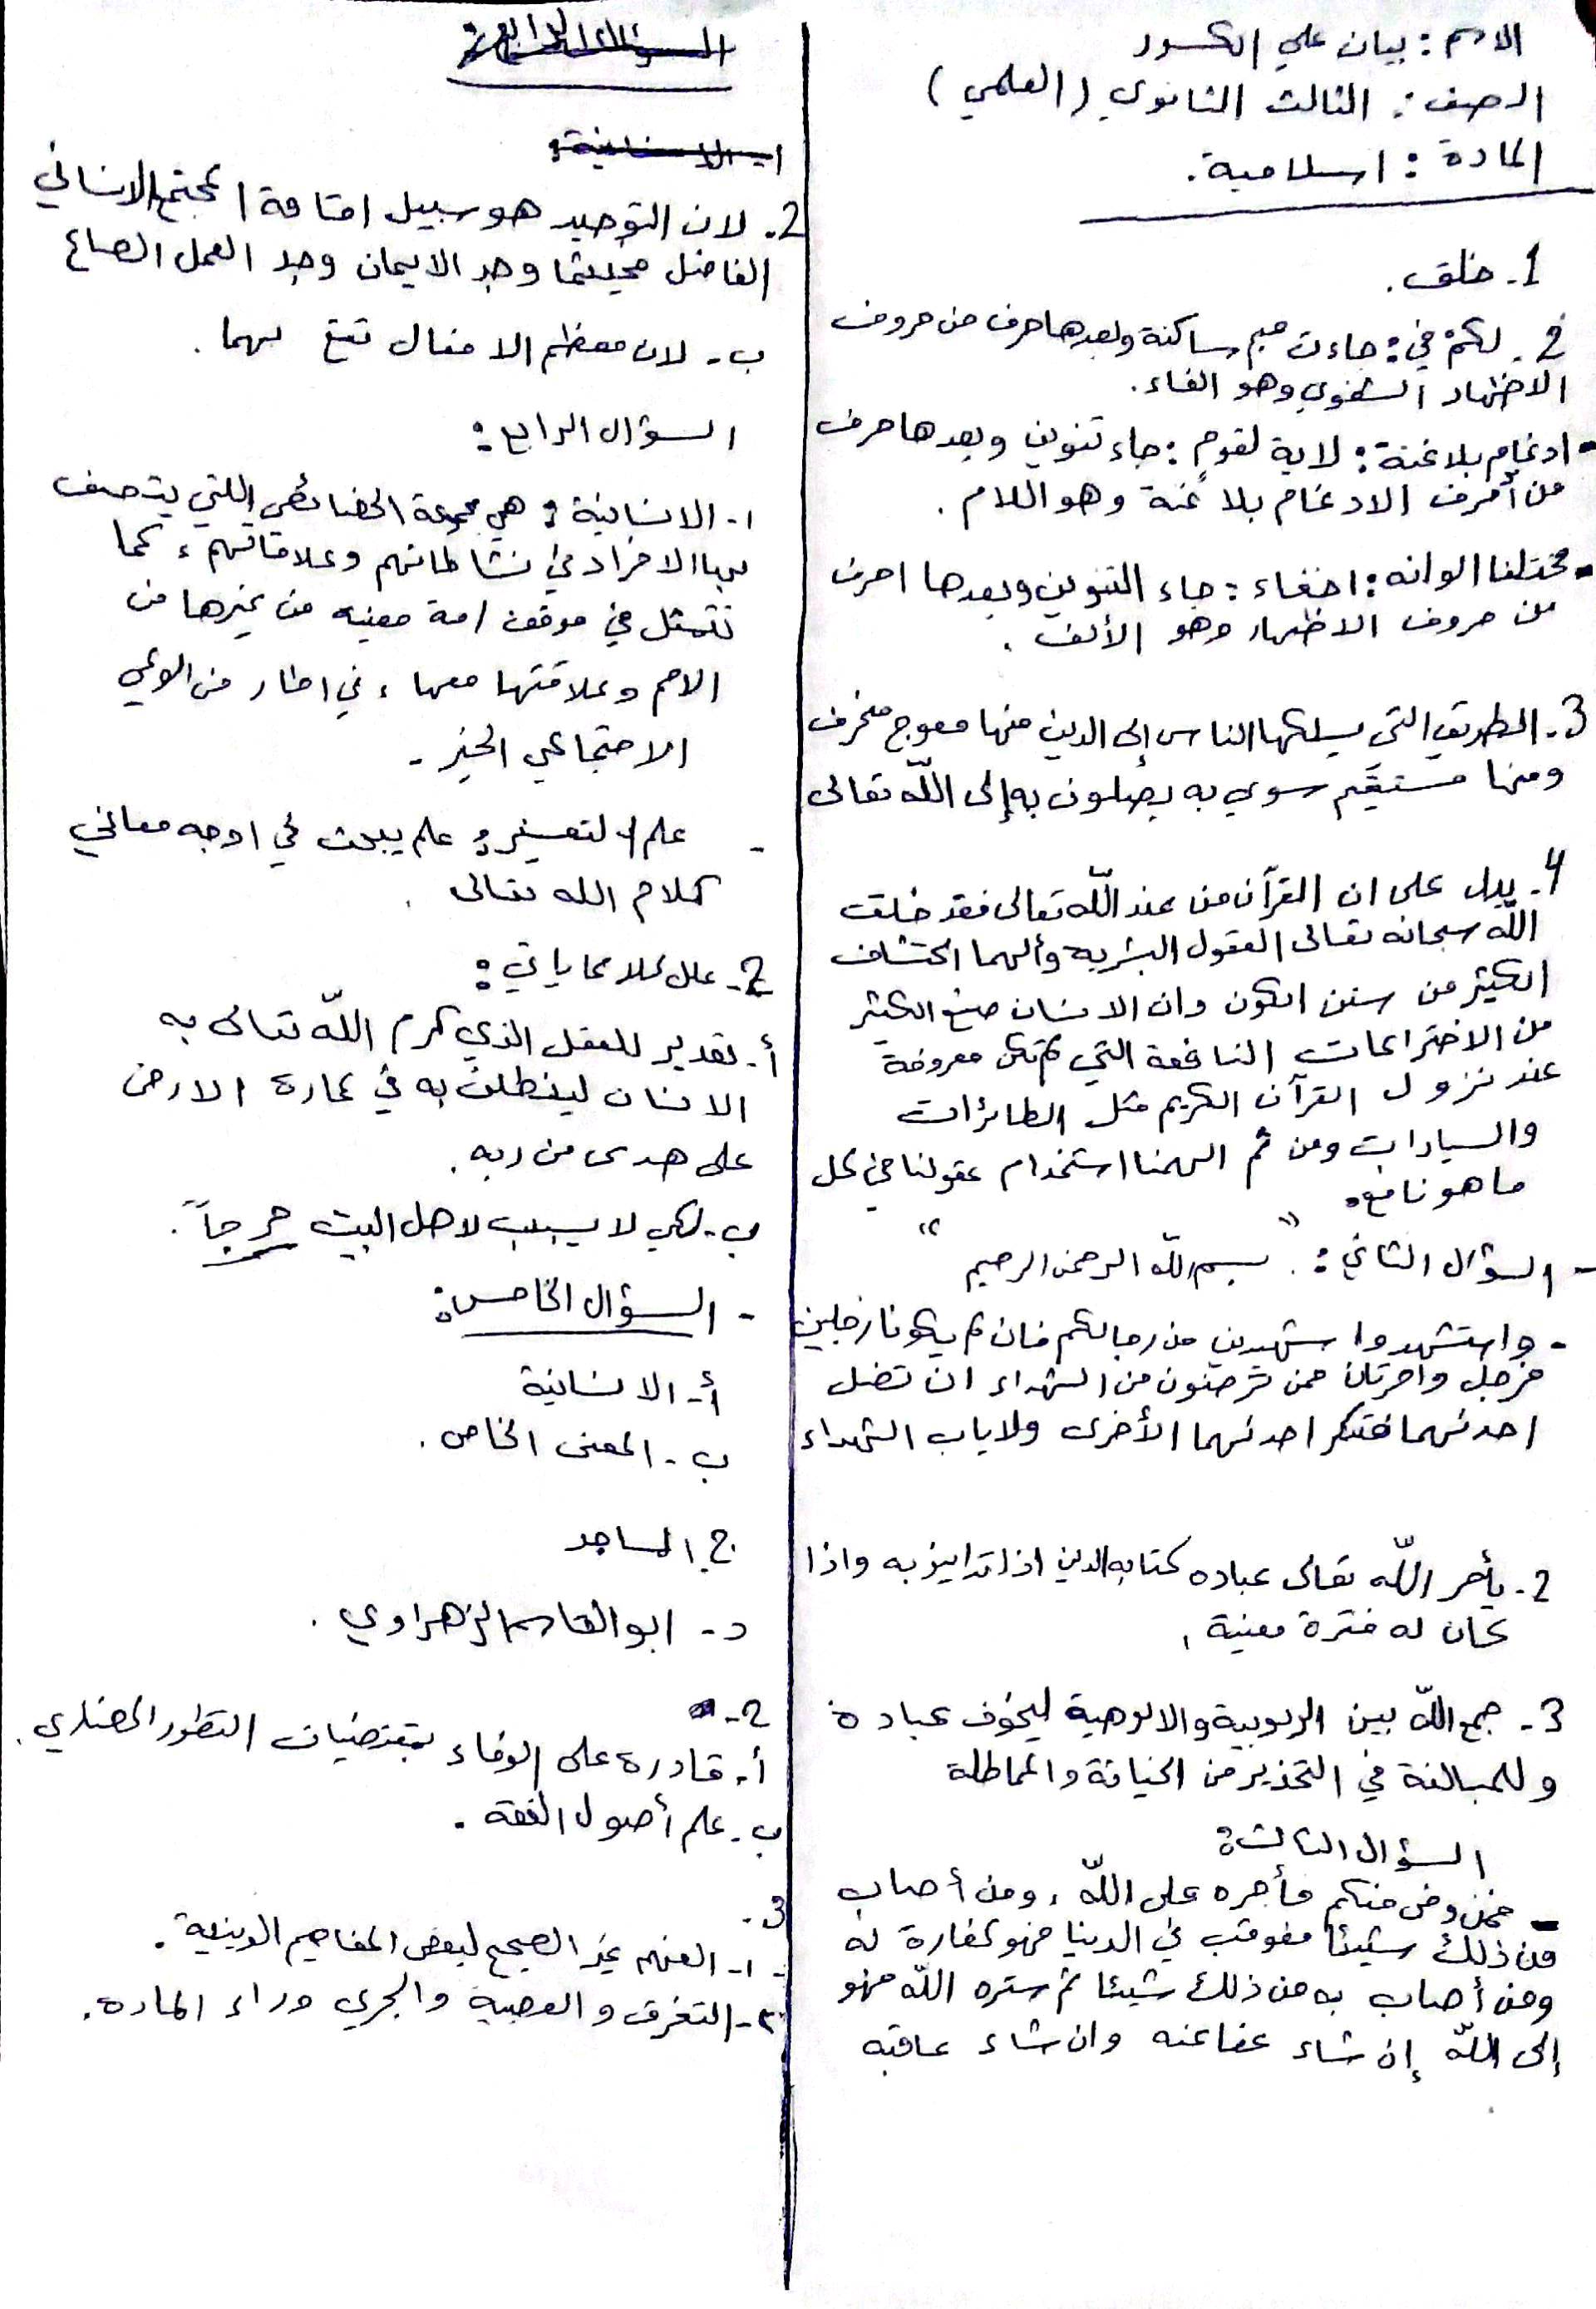 الاسم : بيان علي الكسور
الصف : الثالث الثانوي (العلمي)
المادة : اسلامية .
1- خلق .
2- لكم في : جاءت ميم ساكنة وبعدها حرف من حروف
الاظهار الشفوي وهو الفاء .
- ادغام بلا غنة : لاية لقوم : جاء تنوين وبعدها حرف
من أحرف الادغام بلا غنة وهو اللام .
- مختلفا الوانه : اخفاء : جاء التنوين وبعدها احرف
من حروف الاظهار وهو الألف .
3- الطريق التي يسلكها الناس إلى الدين منها معوج منحرف
ومنها مستقيم سوي به يصلون به إلى اللّه تعالى
4- يدل على ان القرآن من عند اللّه تعالى فقد خلق
اللّه سبحانه تعالى العقول البشرية وألهما اكتشاف
الكثير من سنن الكون وان الانسان صنع الكثير
من الاختراعات النافعة التي لم تكن معروفة
عند نزول القرآن الكريم مثل الطائرات
والسيارات ومن ثم الهمنا استخدام عقولنا في كل
ما هو نافع .
- السؤال الثاني : " بسم اللّه الرحمن الرحيم "
- واستشهدوا شهيدين من رجالكم فان لم يكونا رجلين
فرجل وامرتان ممن ترضون من الشهداء ان تضل
احدئهما فتذكر احدئهما الأخرى ولا ياب الشهداء
2- يأمر اللّه تعالى عباده كتابه الدين اذا تداينو به واذا
كان له فترة معينة .
3- جمع اللّه بين الربوبية والالوهية ليخوف عباده
وللمبالغة في التحذير من الخيانة والمماطلة
السؤال الثالث :
- فمن وفى منكم فأجره على اللّه ، ومن أصاب
من ذلك شيئا فعوقب في الدنيا فهو كفارة له
ومن أصاب به من ذلك شيئا ثم ستره اللّه فهو
إلى اللّه إن شاء عفا عنه وان شاء عاقبه
السؤال الرابع :
1- الانسانية :
2- لان التوحيد هو سبيل اقامة المجتمع الانساني
الفاضل فحيثما وجد الايمان وجد العمل الصالح
ب- لان معظم الافعال تقع بهما .
السؤال الرابع :
1- الانسانية : هي مجموعة الخصائص اللتي يتصف
بها الافراد في نشاطاتهم وعلاقاتهم ، كما
تتمثل في موقف امة معينه من غيرها من
الامم وعلاقتها معها ، في اطار من الوعي
الاجتماعي الخير -
- علم التفسير : علم يبحث في اوجه معاني
كلام الله تعالى .
2- علل كلا مما ياتي :
أ- تقدير للعقل الذي كرم اللّه تعالى به
الانسان لينطلق به في عمارة الارض
على هدى من ربه .
ب- لكي لا يسبب لاهل البيت حرجاً .
- السؤال الخامس :
أ- الانسانية
ب- المعنى الخاص .
ج- المساجد
د- ابو القاسم الزهراوي .
2-
أ- قادرة على الوفاء بمقتضيات التطور الحضاري .
ب- علم أصول الفقه .
3-
- 1- الفهم غير الصحيح لبعض المفاهيم الدينية .
٢- التفرق والعصبية والجري وراء المادة .